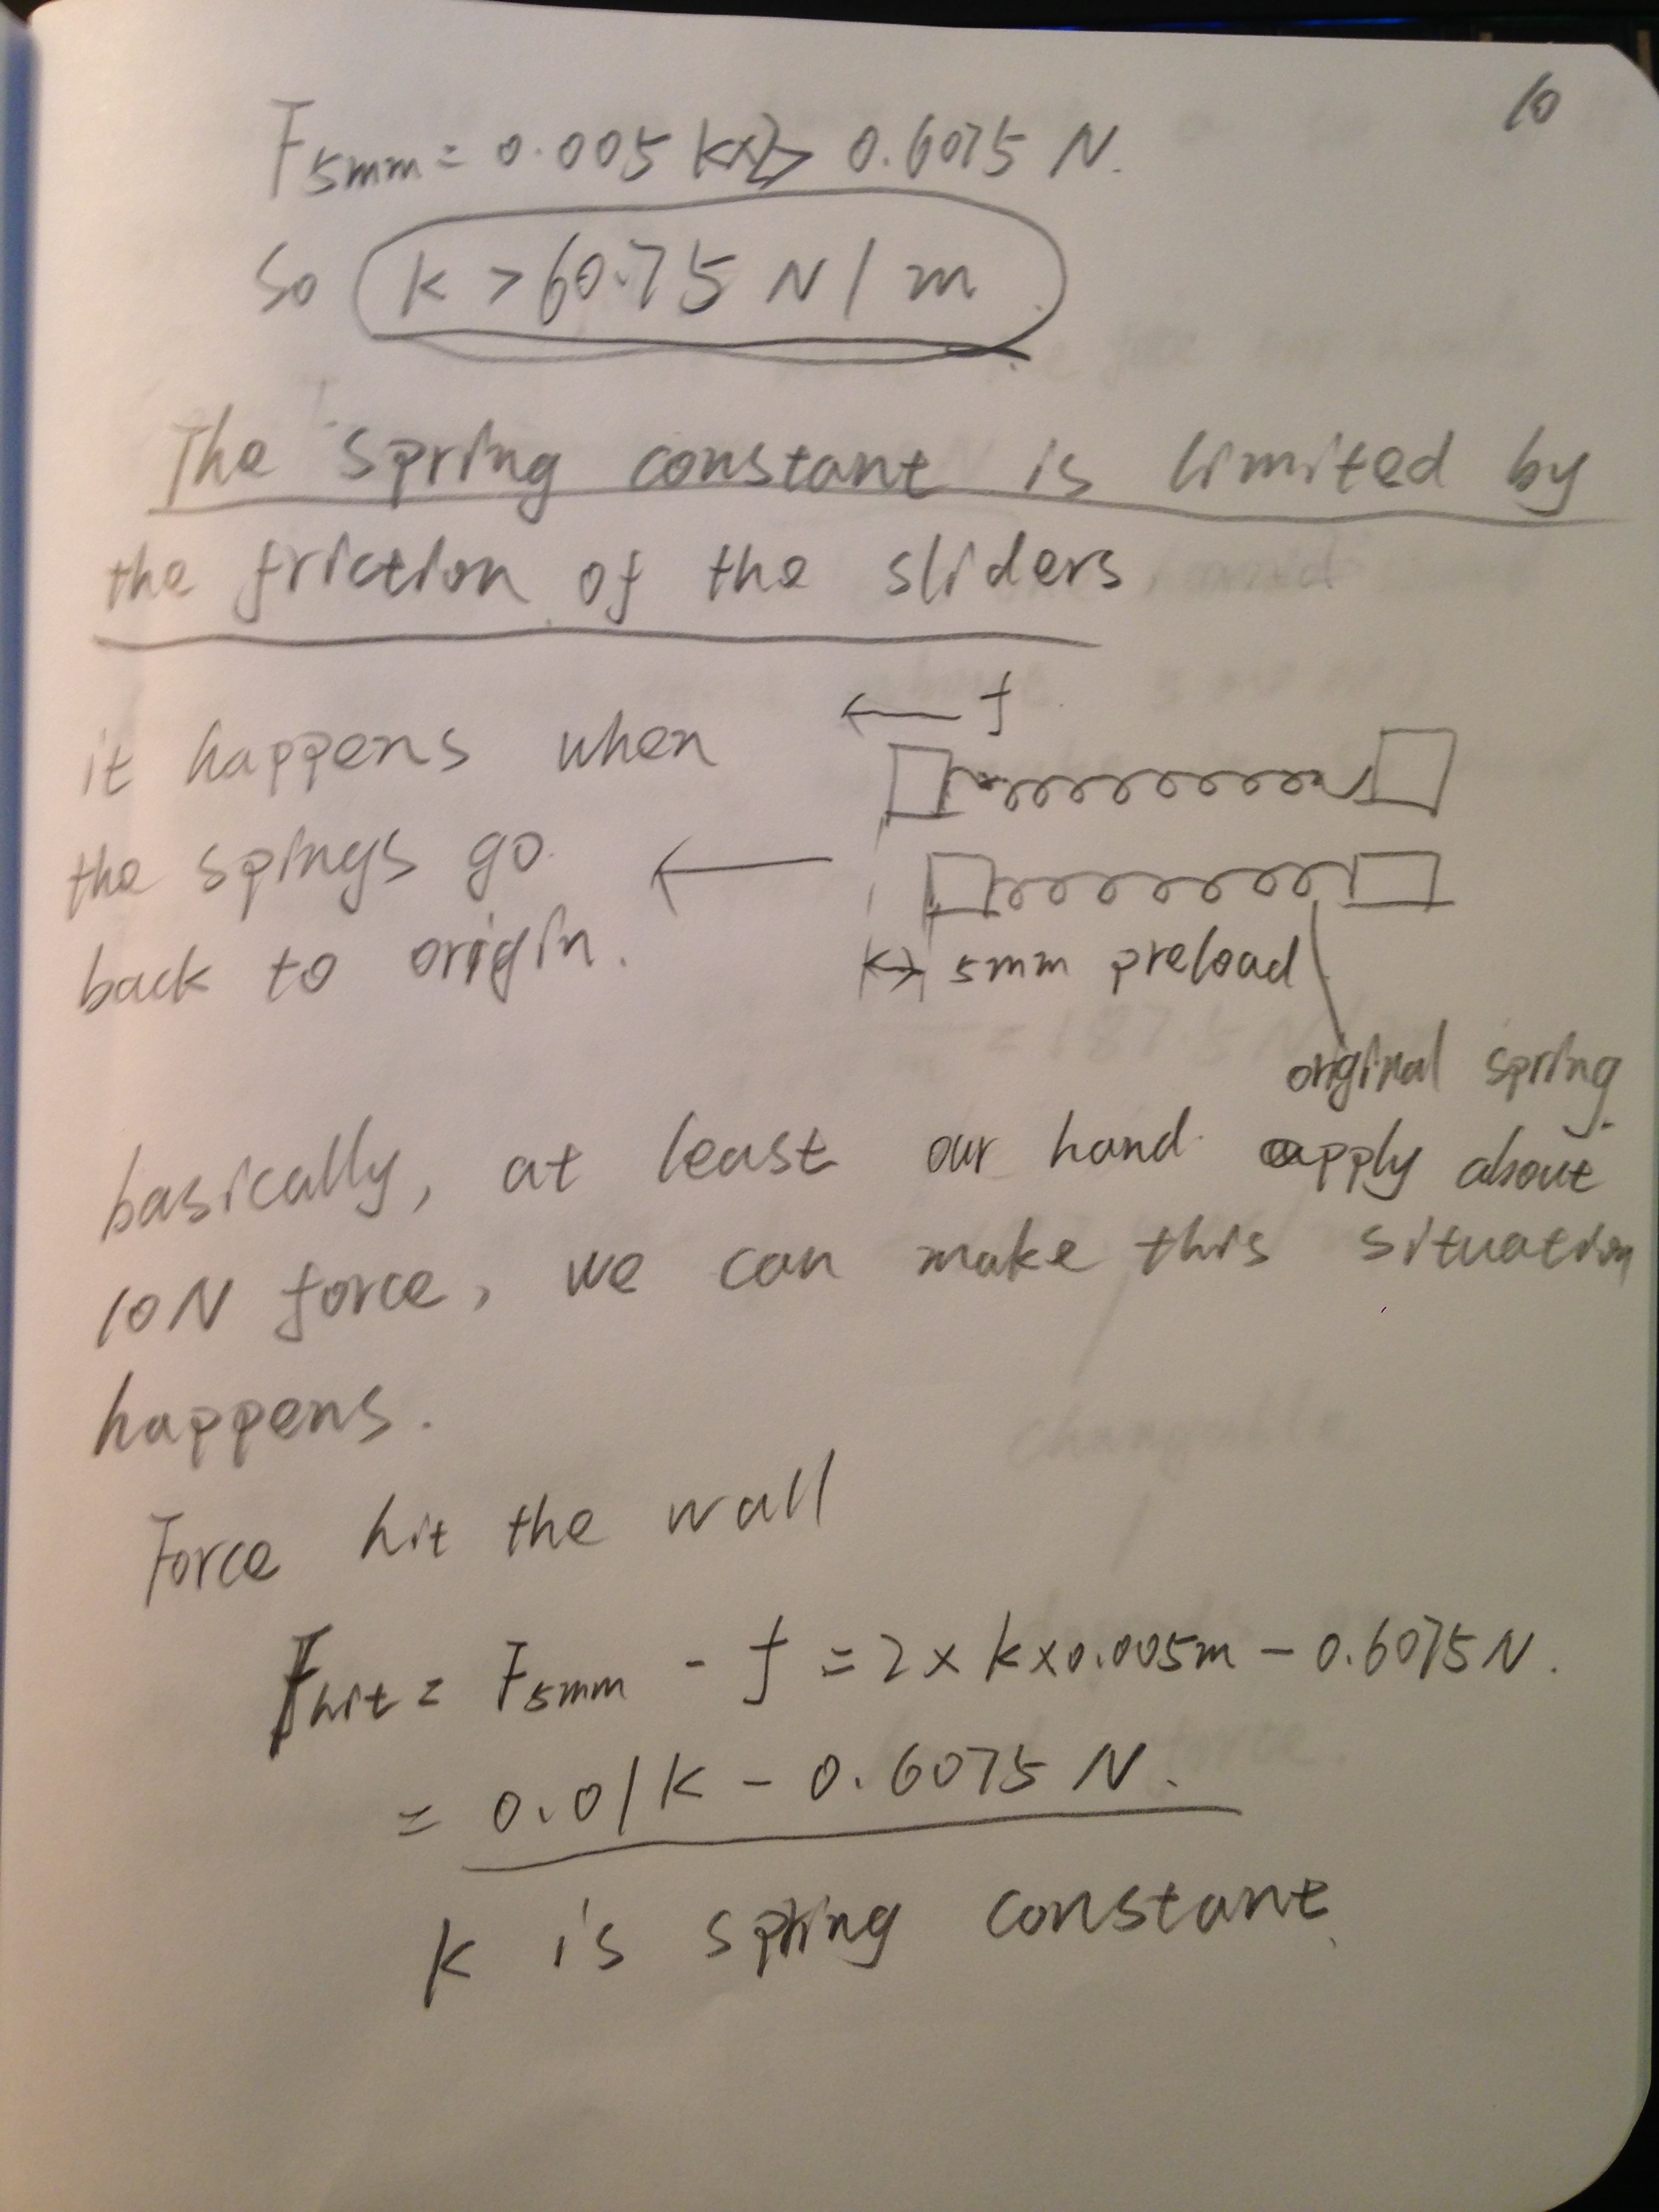 10
F5mm = 0.005 k×2 > 0.6075 N.
So k > 60.75 N/m
The spring constant is limited by
the friction of the sliders
f
it happens when
the spings go
back to origin.
5mm preload
original spring.
basically, at least our hand apply about
10N force, we can make this situation
happens.
Force hit the wall
Fhit = F5mm - f = 2 × k × 0.005m - 0.6075 N.
= 0.01k - 0.6075 N.
k is spring constant.
= 187.5 N
changeable
force.